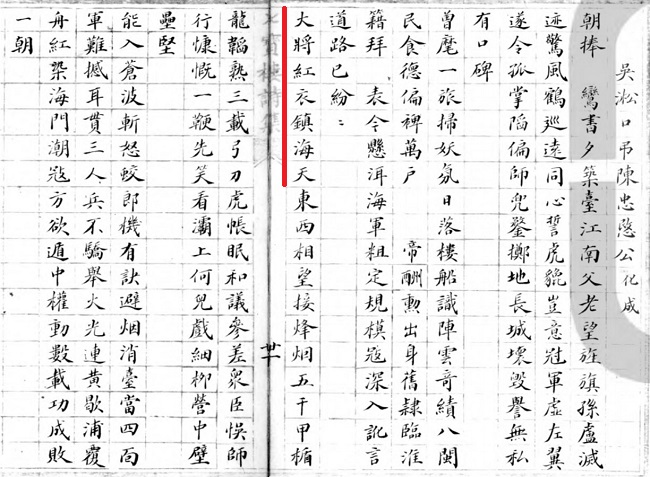 吳淞口弔陳忠愍公化成
朝捧 鸞書夕築臺江南父老望旌旗孫盧滅
迹驚風鶴巡遠同心誓虎貔豈意冠軍虛左翼
遂令孤掌陷偏師兜鍪擲地長城壞毀譽無私
有口碑
曾麾一旅掃妖氛日落樓船識陣雲奇績八閩
民食德偏裨萬戶 帝酬勲出身舊隸臨淮
籍拜 表令懸洱海軍粗定規模寇深入訛言
道路已紛〻
大將紅衣鎮海天東西相望接烽烟五千甲楯
詩集
廿一
龍韜熟三載弓刀虎帳眠和議參差衆臣悞師
行慷慨一鞭先笑看灞上何兒戲細柳營中壁
壘堅
能入蒼波斬怒蛟郎機有訣避烟消臺當四面
軍難撼耳貫三人兵不驕舉火光連黃歇浦覆
舟紅染海門潮寇方欲遁中權動數載功成敗
一朝